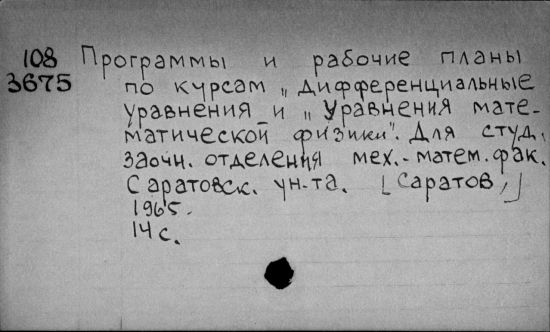 108 Программы и рабочие планы
3675 по курсам „Дифференциальные
уравнения и „Уравнения мате-
матической физики". Для студ.
заочн. отделения мех.-матем. фак.
Саратовск. ун-та. [Саратов,]
1965.
14 с.